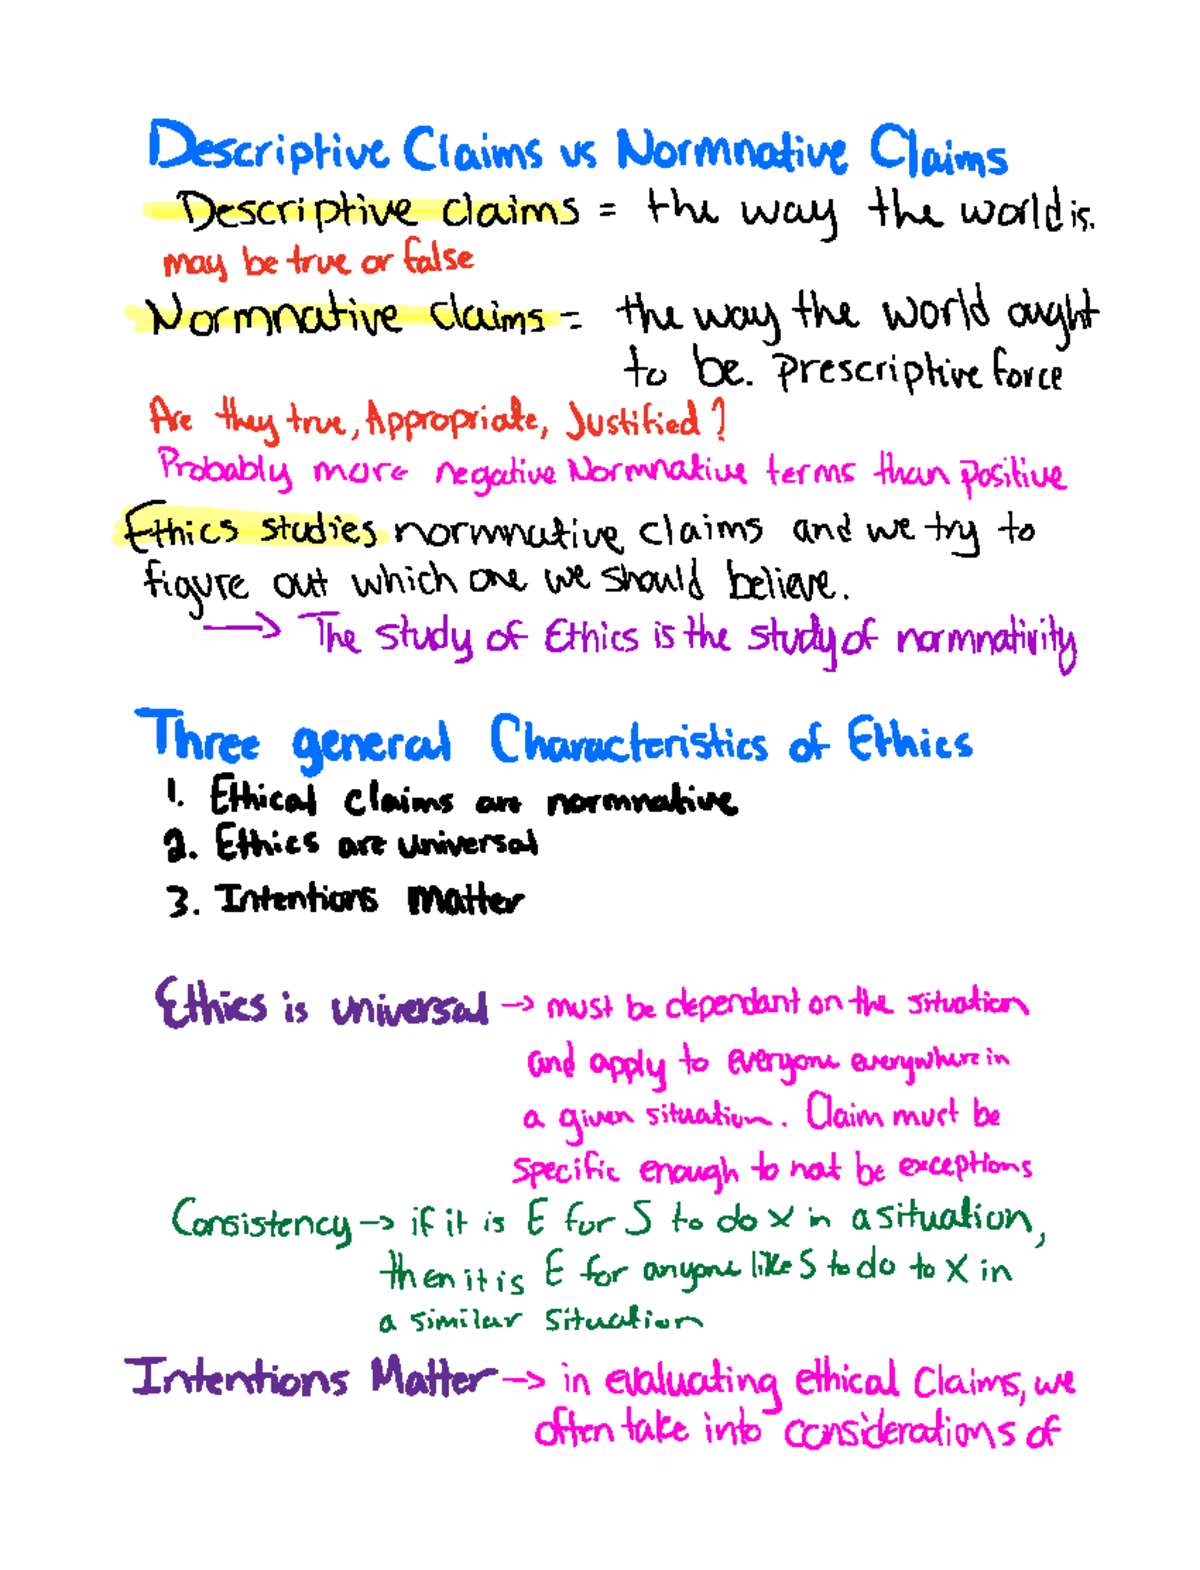 Descriptive Claims vs Normnative Claims
Descriptive claims = the way the world is.
may be true or false
Normnative claims = the way the world ought
to be. Prescriptive force
Are they true, Appropriate, Justified?
Probably more negative Normnative terms than positive
Ethics studies normnative claims and we try to
figure out which one we should believe.
→ The study of Ethics is the study of normnativity
Three general Characteristics of Ethics
1. Ethical claims are normnative
2. Ethics are universal
3. Intentions Matter
Ethics is universal → must be dependant on the situation
and apply to everyone everywhere in
a given situation. Claim must be
specific enough to not be exceptions
Consistency → if it is E for S to do X in a situation,
then it is E for anyone like S to do to X in
a similar situation
Intentions Matter → in evaluating ethical claims, we
often take into considerations of